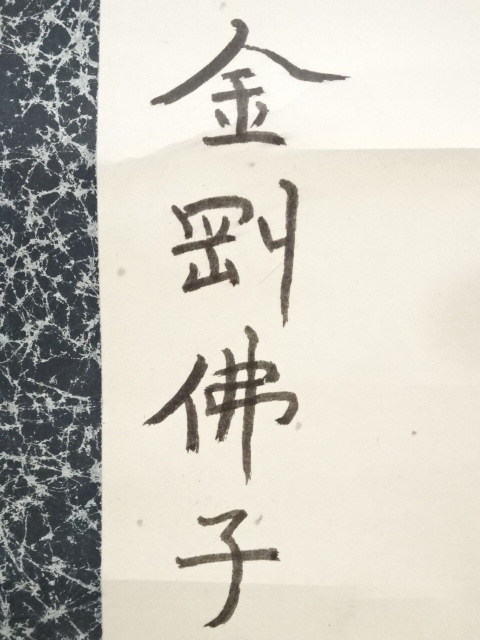 金剛佛子